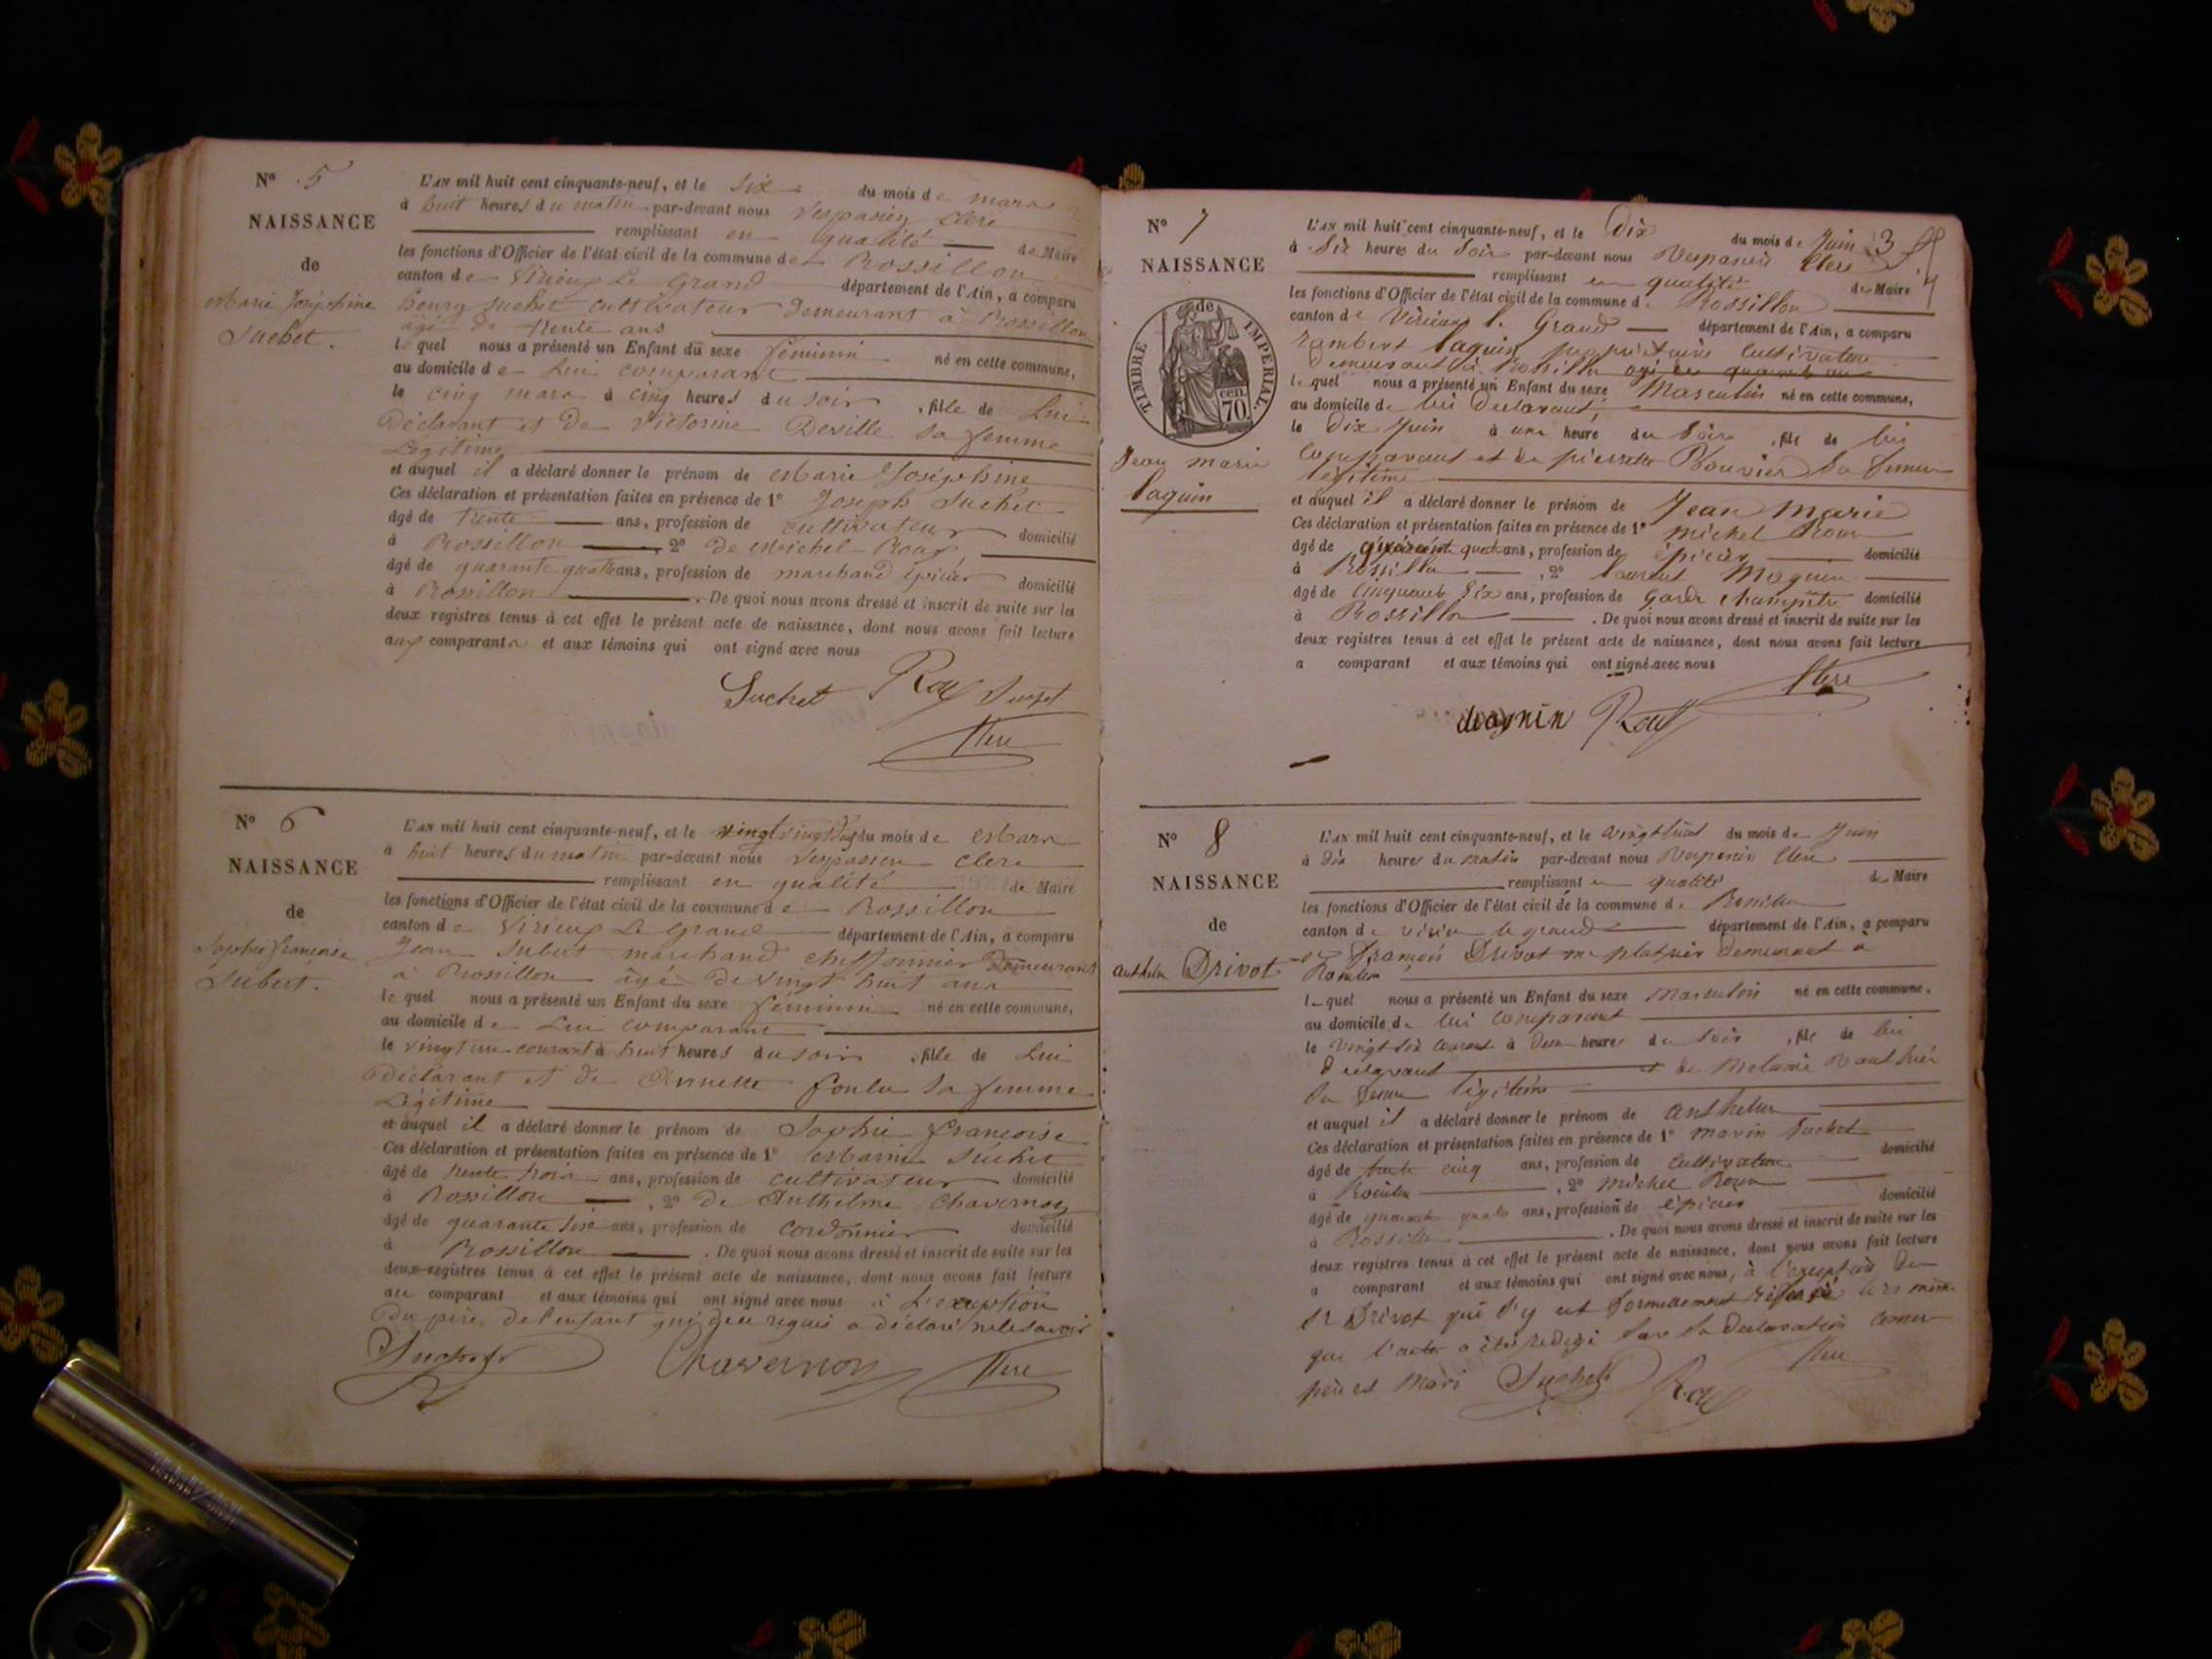 N° 5
NAISSANCE
de
Marie Joséphine
Suchet.
L'AN mil huit cent cinquante-neuf, et le six du mois de mars
à huit heures du matin par-devant nous Vespasien Clerc
remplissant en qualité de Maire
les fonctions d'Officier de l'état civil de la commune de Rossillon
canton de Virieux Le Grand département de l'Ain, a comparu
henry Suchet cultivateur demeurant à Rossillon
âgé de trente ans
lequel nous a présenté un Enfant du sexe féminin né en cette commune,
au domicile de Lui comparant
le cinq mars à cinq heures du soir, fille de Lui
Déclarant et de Victorine Deville sa femme
Légitime
et auquel il a déclaré donner le prénom de Marie Joséphine
Ces déclaration et présentation faites en présence de 1° Joseph Suchet
âgé de trente ans, profession de cultivateur domicilié
à Rossillon, 2° de Michel Roux
âgé de quarante quatre ans, profession de marchand épicier domicilié
à Rossillon. De quoi nous avons dressé et inscrit de suite sur les
deux registres tenus à cet effet le présent acte de naissance, dont nous avons fait lecture
aux comparants et aux témoins qui ont signé avec nous
Suchet Roux Suchet
Clerc
N° 6
NAISSANCE
de
Sophie françoise
Subert.
L'AN mil huit cent cinquante-neuf, et le du mois de Mars
à huit heures du matin par-devant nous Vespasien Clerc
remplissant en qualité de Maire
les fonctions d'Officier de l'état civil de la commune de Rossillon
canton de Virieux Le Grand département de l'Ain, a comparu
Jean Subert marchand chiffonnier demeurant
à Rossillon âgé de vingt huit ans
lequel nous a présenté un Enfant du sexe féminin né en cette commune,
au domicile de Lui comparant
le vingt un courant à huit heures du soir, fille de Lui
Déclarant et de sa femme
Légitime
et auquel il a déclaré donner le prénom de Sophie françoise
Ces déclaration et présentation faites en présence de 1° Marin Suchet
âgé de trente trois ans, profession de cultivateur domicilié
à Rossillon, 2° de Anthelme Chavernoz
âgé de quarante six ans, profession de cordonnier domicilié
à Rossillon. De quoi nous avons dressé et inscrit de suite sur les
deux registres tenus à cet effet le présent acte de naissance, dont nous avons fait lecture
au comparant et aux témoins qui ont signé avec nous à L'exception
Du père de l'enfant qui de ce requis a déclaré ne le savoir
Suchet Chavernoz Clerc
N° 7
NAISSANCE
TIMBRE IMPERIAL
de
70 cen.
Jean marie
Paquin
L'AN mil huit cent cinquante-neuf, et le Dix du mois de Juin
à Six heures du Soir par-devant nous Vespasien Clerc
remplissant en qualité de Maire
les fonctions d'Officier de l'état civil de la commune de Rossillon
canton de Virieux le Grand département de l'Ain, a comparu
Rambert Paquin propriétaire Cultivateur
Demeurant à Rossillon âgé de quarante ans
lequel nous a présenté un Enfant du sexe Masculin né en cette commune,
au domicile de lui Déclarant,
le Dix Juin à une heure du Soir, fils de lui
Comparant et de pierrette Bouvier Sa femme
légitime
et auquel il a déclaré donner le prénom de Jean Marie
Ces déclaration et présentation faites en présence de 1° Michel Roux
âgé de quarante quatre ans, profession de épicier domicilié
à Rossillon, 2° laurent Magnin
âgé de Cinquante Six ans, profession de Garde Champêtre domicilié
à Rossillon. De quoi nous avons dressé et inscrit de suite sur les
deux registres tenus à cet effet le présent acte de naissance, dont nous avons fait lecture
a comparant et aux témoins qui ont signé avec nous
Clerc
Magnin Roux
N° 8
NAISSANCE
de
Anthelme Drivot
L'AN mil huit cent cinquante-neuf, et le vingt huit du mois de Juin
à dix heures du matin par-devant nous Vespasien Clerc
remplissant en qualité de Maire
les fonctions d'Officier de l'état civil de la commune de Rossillon
canton de virieu le grand département de l'Ain, a comparu
françois Drivot platrier demeurant à
Rossillon
lequel nous a présenté un Enfant du sexe masculin né en cette commune.
au domicile de lui Comparant
le vingt six Courant à deux heures du Soir, fils de lui
déclarant et de Melanie
Sa femme légitime
et auquel il a déclaré donner le prénom de anthelme
Ces déclaration et présentation faites en présence de 1° marin Suchet
âgé de trente cinq ans, profession de Cultivateur domicilié
à Rossillon, 2° michel Roux
âgé de quarante quatre ans, profession de épicier domicilié
à Rossillon. De quoi nous avons dressé et inscrit de suite sur les
deux registres tenus à cet effet le présent acte de naissance, dont nous avons fait lecture
a comparant et aux témoins qui ont signé avec nous, à l'exception du
Sr Drivot qui S'y est formellement refusé
que l'acte a été rédigé Sur Sa déclaration comme
père et Mari Suchet Roux Clerc